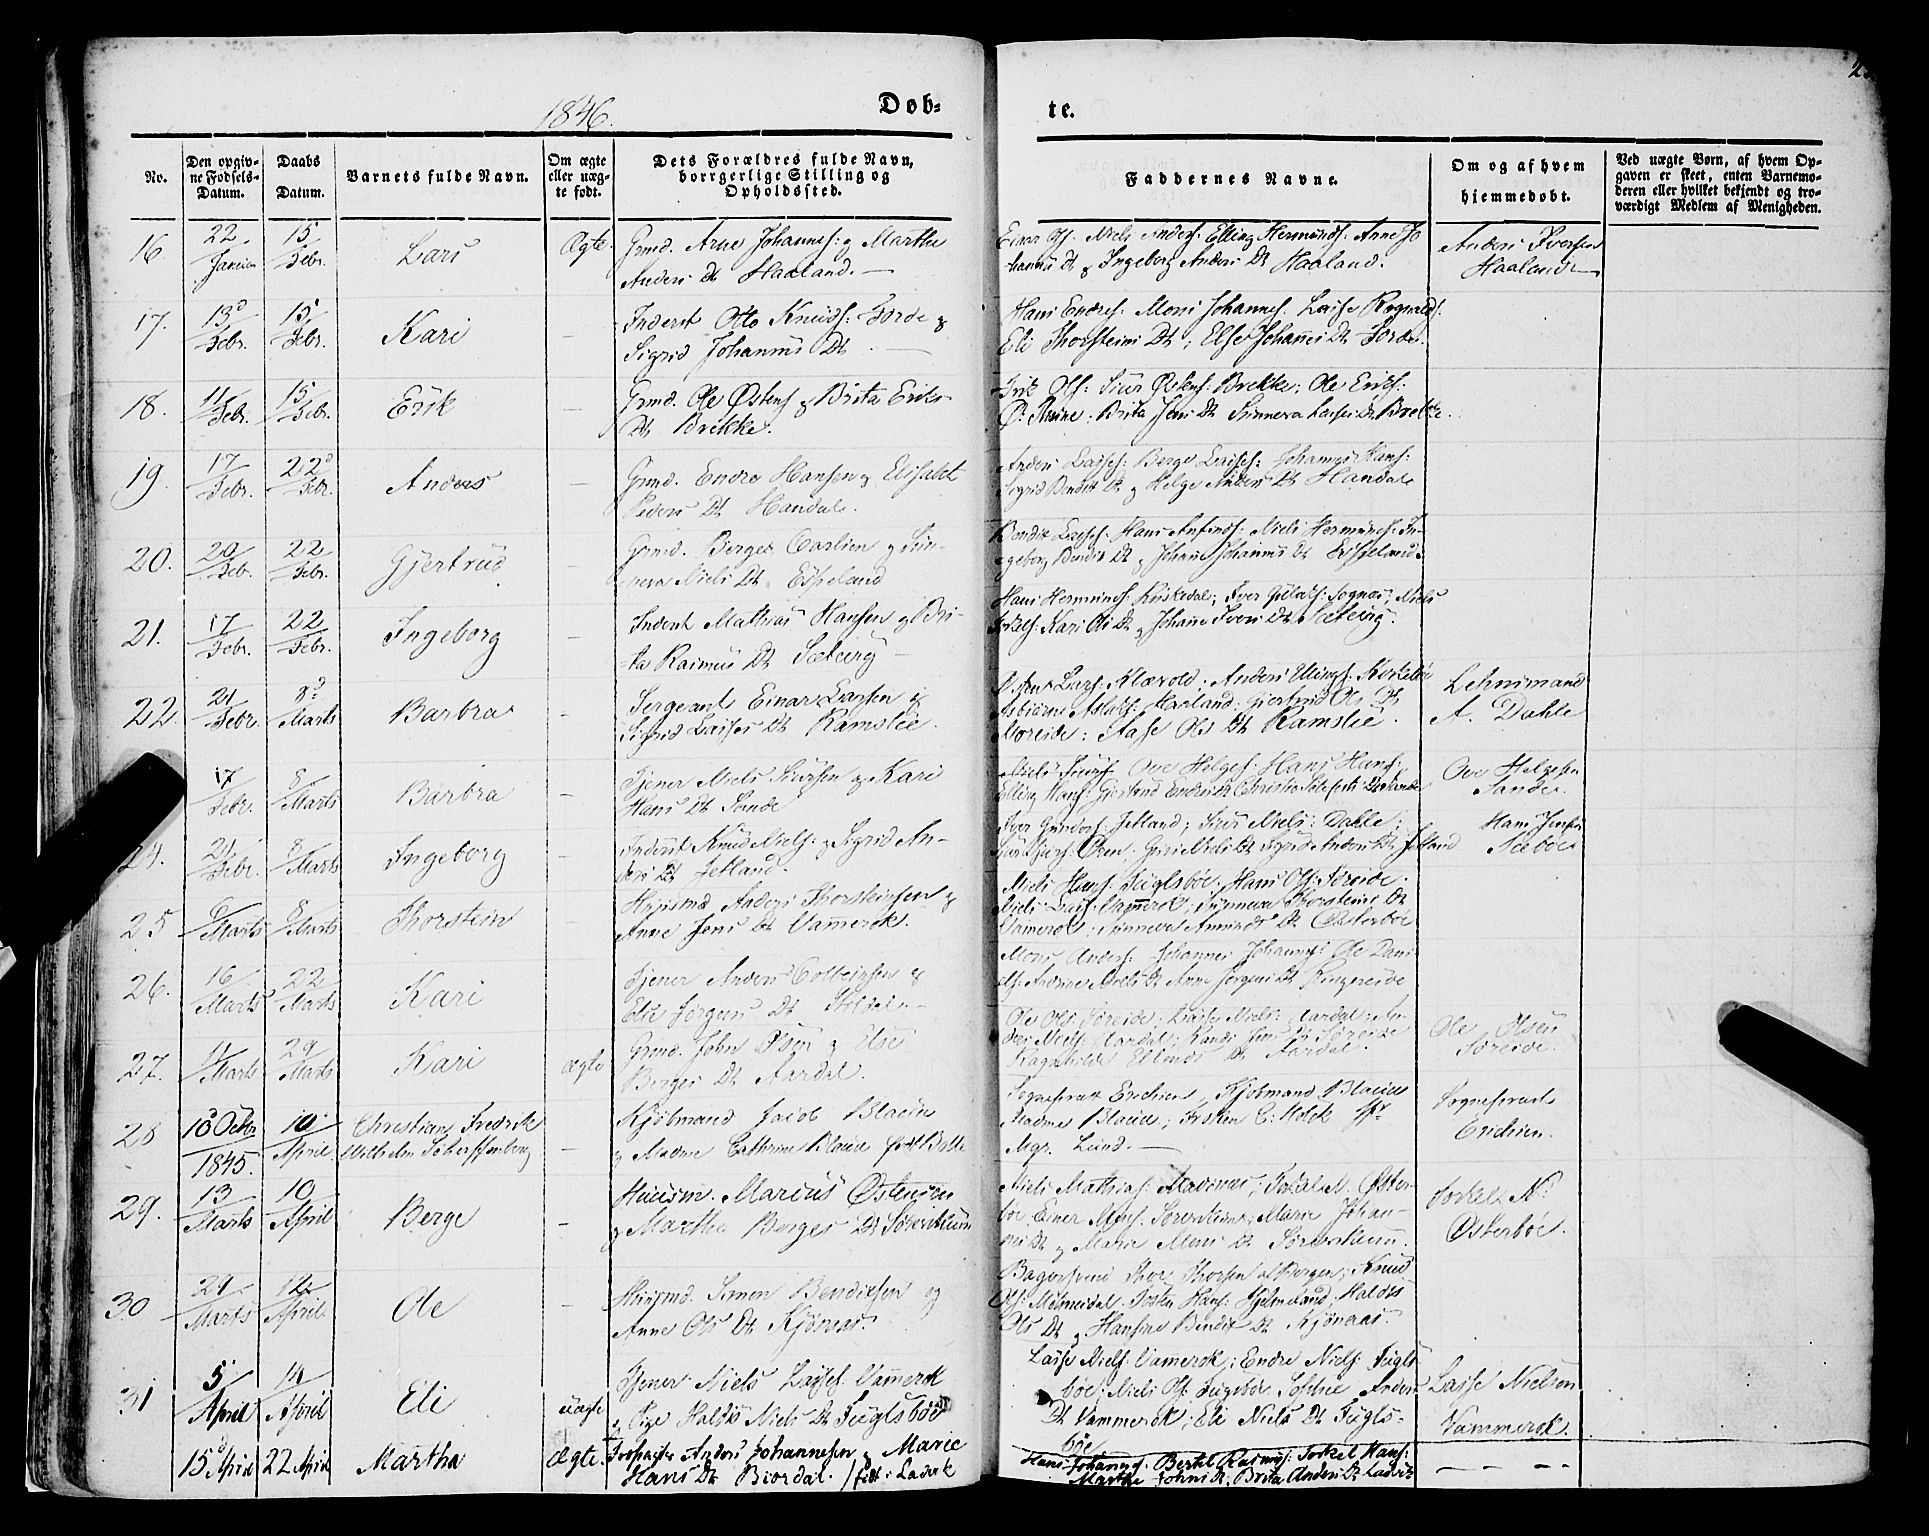 1846.
Døb-
te.
No.
Den opgiv-
ne Fødsels-
Datum.
Daabs
Datum.
Barnets fulde Navn.
Om ægte
eller uæg-
te født.
Dets Forældres fulde Navn,
borrgerlige Stilling og
Opholdssted.
Faddernes Navne.
Om og af hvem
hjemmedøbt.
Ved uægte Børn, af hvem Op-
gaven er skeet, enten Barnemo-
deren eller hvilket bekjendt og tro-
værdigt Medlem af Menigheden.
16
22
15
Febr.
Lars
Ægte
Grmd. Arne Johannes: og Marthe
Anders Dt Haaland. —
Einar Ols: Niels Anders: Elling Hermunds: Anne Jo
hannes Dt og Ingeborg Anders Dt Haaland.
Anders Iversen
Haaland
17.
13d
Febr.
15
Febr.
Kari
—
Inderst Otto Knuds: Førde og
Sigrid Johannes Dt —
Hans Endres: Mons Johannes: Lasse Rognalds:
Eli Thorsteins Dt; Else Johannes Dt Førde.
18.
11
Febr.
15
Febr.
Erik
—
Grmd. Ole Østens: og Brita Eriks
Dt Brekke.
Erik Ols: Siur Østens: Brekke; Ole Eriks:
Brita Jens Dt Sünneva Lasses Dt Brekke.
19.
17
Febr.
22d
Febr.
Anders
—
Grmd. Endre Hansen og Elisabet
Peders Dt Handale.
Anders Lasses: Berge Lasses: Johannes Hans:
Sigrid Bendix Dt og Helge Anders Dt Handale
20.
20
Feb.
22
Febr.
Gjertrud
—
Grmd. Berge Carlsen og Sün-
neva Niels Dt Espeland
Bendix Lasses: Hans Anfinds: Niels Hermunds: In-
geborg Bendix Dt og Johanne Johannes Dt Espeland.
21.
17
Febr.
22
Febr.
Ingeborg
—
Inderst Mathias Hansen og Bri-
ta Rasmus Dt Sæteng —
Hans Hermunds: Iver Sognes; Niels
Torkels: Kari Ols Dt og Johanne Ivers Dt Sæteng.
22
21
Febr.
8d
Marts
Barbra
—
Sergeant Einar Larsen og
Sigrid Lasses Dt Ramslie.
Østen Lars: Klævold; Anders Ellings:
Asbiørn Aslaks: Haaland; Gjertrud Ole Dt
Noreide; Aase Ols Dt Ramslie.
Lehnsmand
A. Dahle
17
Febr.
8
Marts
Barbra
—
Tjener Niels Siursen og Kari
Hans Dt Sande
Niels Siurs: Ove Helges: Hans Hans:
Elling Hans: Gjertrud Endres Dt Christie
Ove Helgesen
Sande.
24.
21
Febr.
8
Marts
Ingeborg
—
Inderst Knud Niels: og Sigrid An-
ders Dt Jetland.
Iver Gunders: Jetland; Siur Niels: Dahle;
Øren; Niels Dt Sigrid Anders Dt Jetland
Hans Jensen
Næbøe
25
6
Marts
8
Marts
Thorstein
—
Huusmd Anders Thorsteinsen og
Anne Jens Dt Vamerok.
Niels Hans: Fuglsbøe. Hans Ols: Søreide.
Niels Lass: Vamerok; Sünneva Thorsteins Dt
Vamerok; Sünneva Amunds Dt Østerbøe
26.
16
Marts
22
Marts
Kari
—
Tjener Anders Colbeinsen og
Elie Jørgens Dt
Mons Anders: Johannes Johannes: Ole Dani-
els: Andrine Niels Dt Anne Jørgens Dt Ringereide
27.
11
Marts
29
Marts
Kari
ægte
Grmd. John Olsen og Else
Berges Dt Aardal.
Ole Ols: Søreide; Lasse Niels: Aardal; An-
ders Niels: Aardal; Randi Jens Dt Søreide
Ragnhilde Ellends Dt Aardal.
Ole Olsen
Søreide.
28
13 Octbr
1845.
10
April
Christian Fredrik
Wilhelm Scherffenberg
—
Kjøbmand Jacob Blauw
og Madme Cathrine Blauw født Bølle
Sognepræst Erichsen, Kjøbmand Blauw
Madme Blauw; Torsten C. Holck
Mgr. Lund. —
Sognepræst
Erichsen.
29.
13
Marts
10
April
Berge
—
Huusm. Marcus Østensen
og Martha Berges Dt Sørestrum
Niels Mathias: Torkel N. Øster-
bøe, Einer Mons: Marie Johan-
nes Dt og Marie Mons Dt
Torkel N.
Østerbøe.
30
29
Marts
12
April
Ole
—
Huusmd. Simon Bendixsen og
Anne Ols Dt Kjønaas.
Bagersvend Thore Thorsen af Bergen; Knud
Ols: Torsten Hans: Hjelmeland, Haldis
Ols Dt og Hansine Bendix Dt Kjønaas.
31
5
April
14
April
Eli
uægte
Tjener Niels Lasses: Vammerok
og Pige Haldis Niels Dt Fuglsbøe
Lasse Niels: Vamerok; Endre Niels: Fugls
bøe; Niels Ols: Fuglsbøe, Sophie Anders
Dt Vammerok; Eli Niels Dt Fugls-
bøe
Lasse Nielsen
Vammerok.
15d April
22 April
Martha
Ægte.
Anders Johannesen og Marie
Hans Dt Biordal.
Hans Johannes: Bertel Rasmus: Torkel Hans:
Marthe Johns Dt, Brita Anders Dt Ladvik
— — —